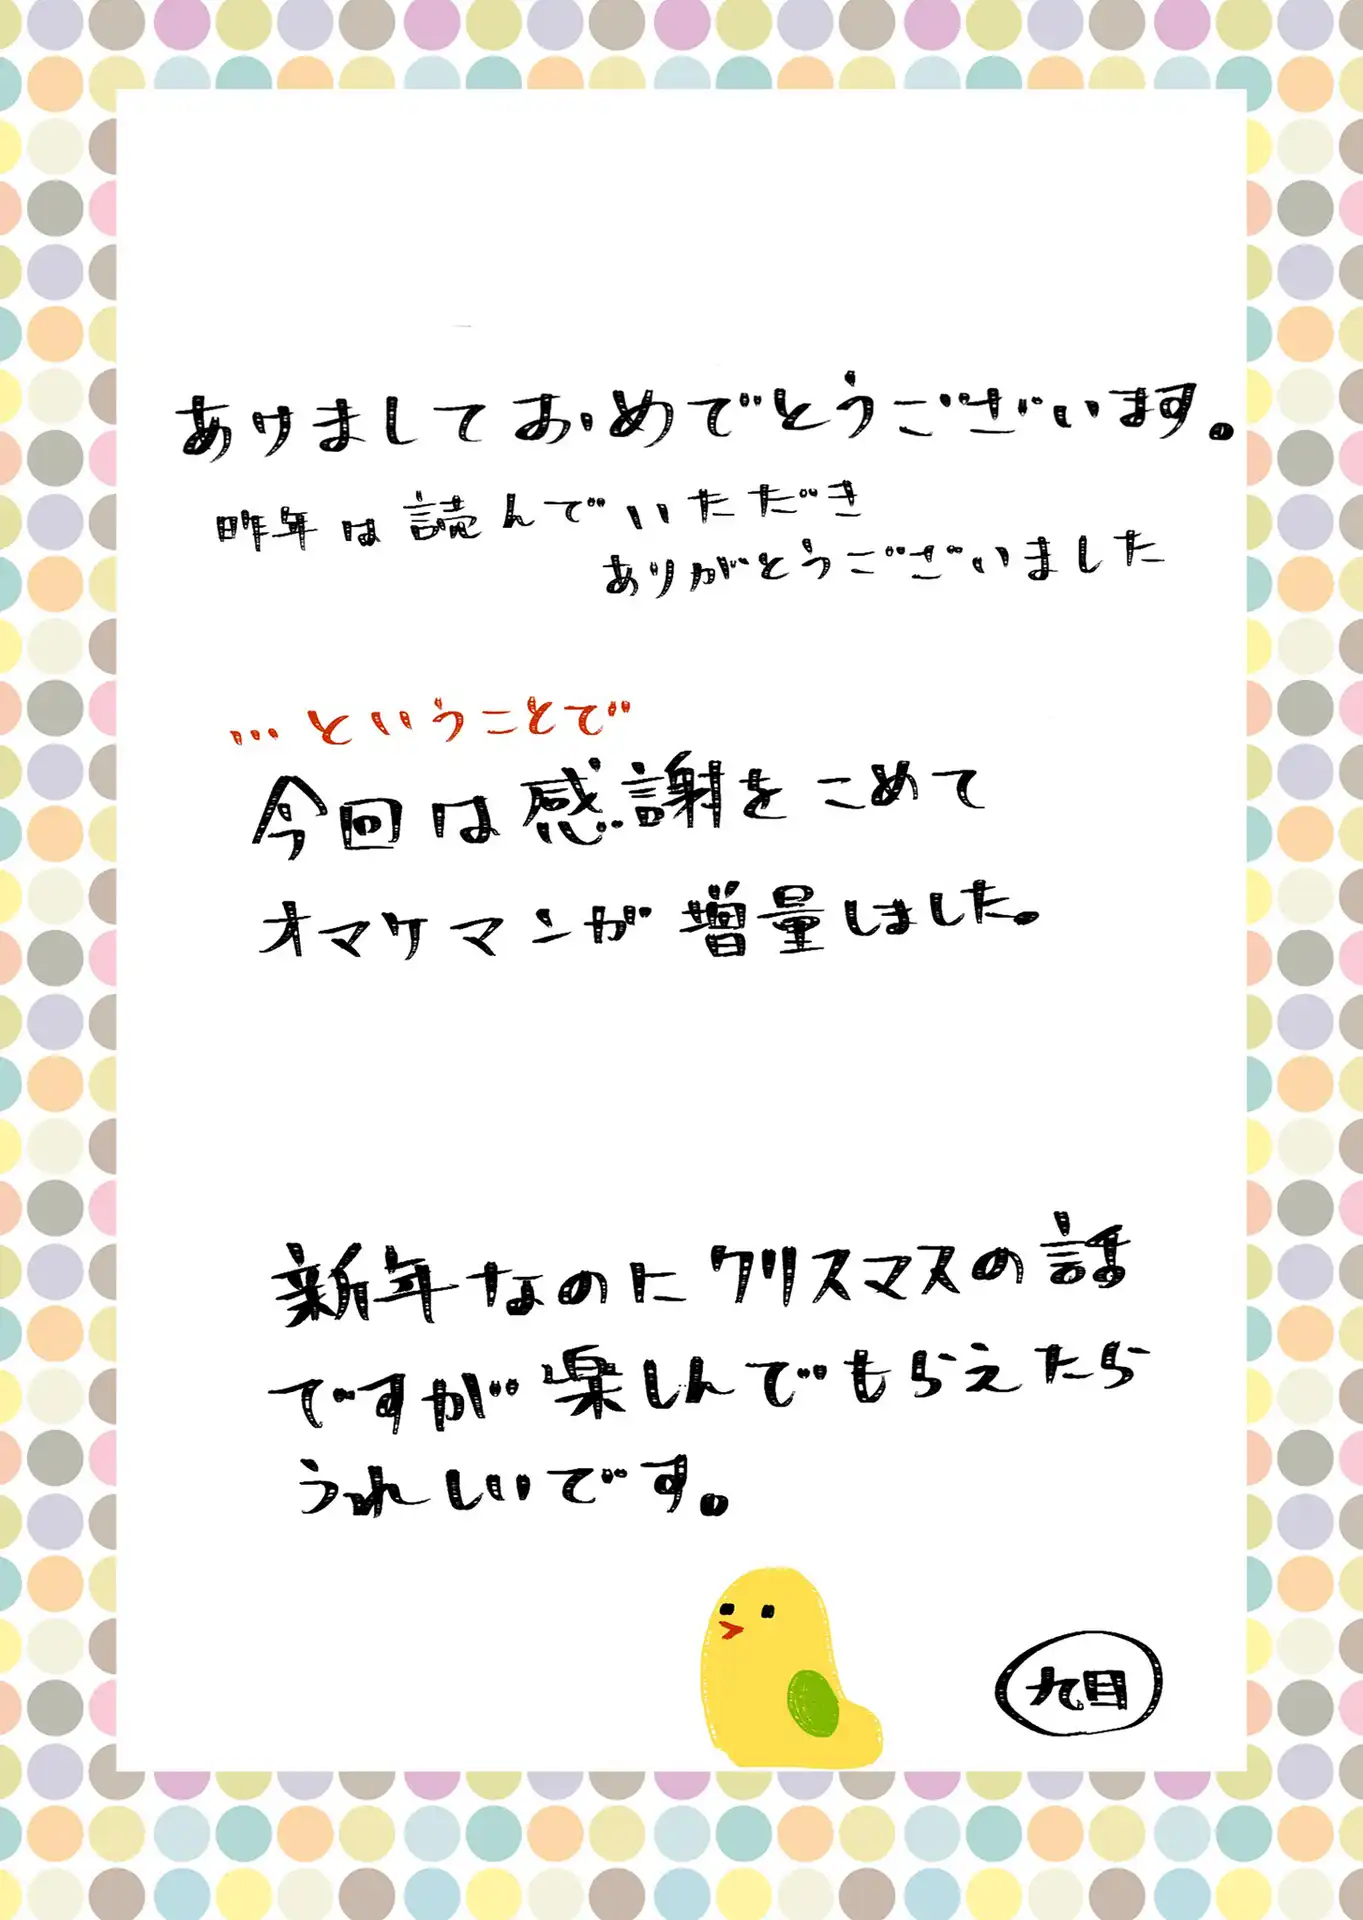 あけましておめでとうございます。
昨年は読んでいただき
ありがとうございました
…ということで
今回は感謝をこめて
オマケマンガ増量しました。
新年なのにクリスマスの話
ですが楽しんでもらえたら
うれしいです。
九目